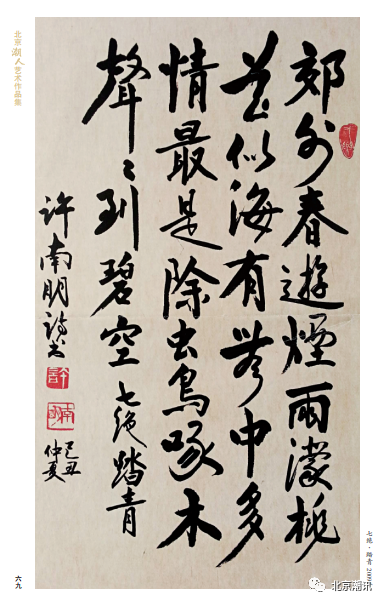 北京潮人艺术作品集
郊外春遊煙雨濛桃
花似海有無中多
情最是除虫鳥啄木
聲〻到碧空 七绝踏青
许南明诗书
己丑
仲夏
七绝·踏青 2009
六九
北京潮讯